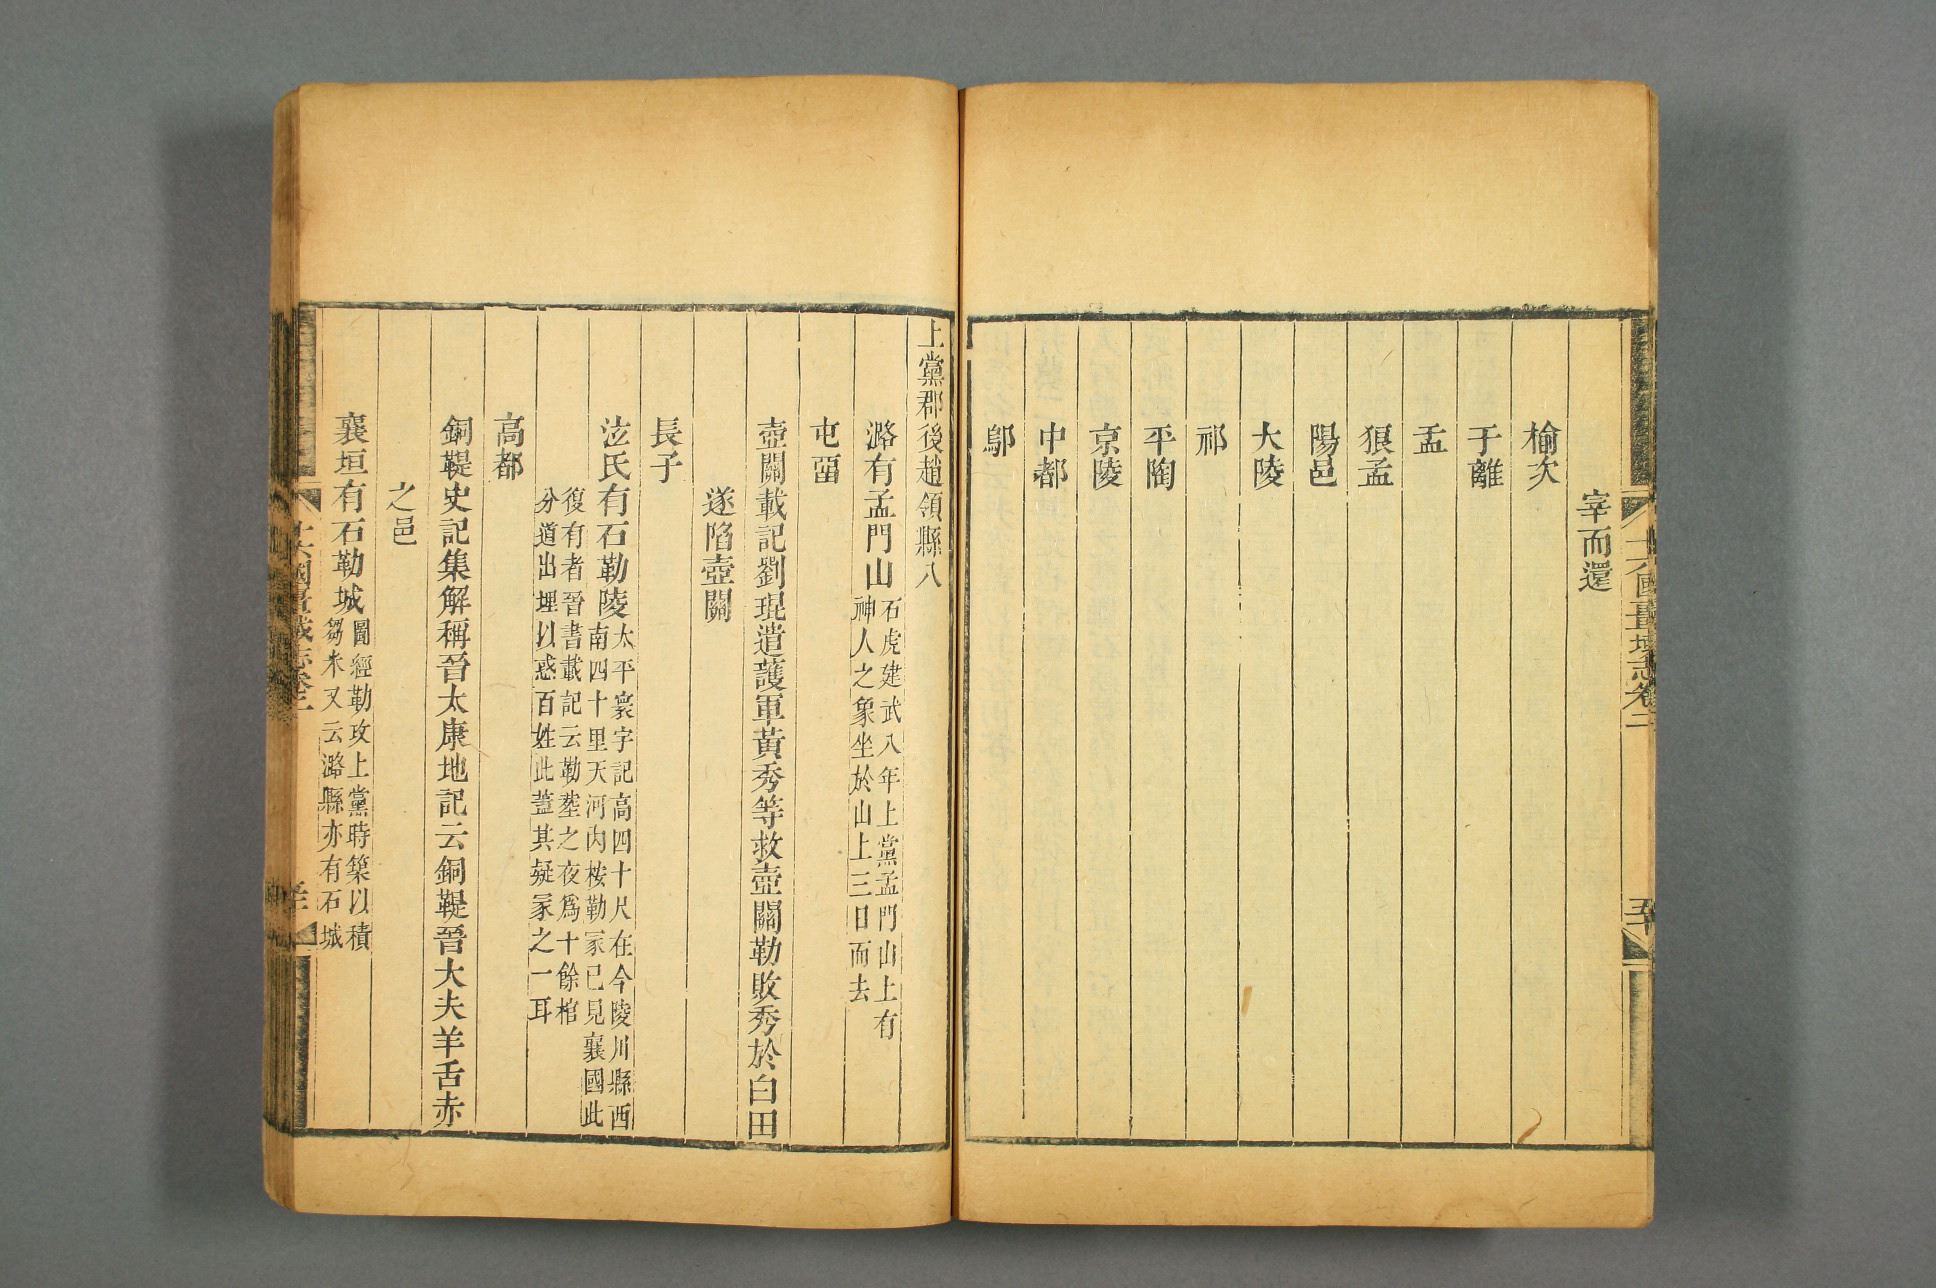 宰而還
榆次
于離
盂
狼孟
陽邑
大陵
祁
平陶
京陵
中都
鄔
十六國疆域志卷二
上黨郡後趙領縣八
潞有孟門山石虎建武八年上黨孟門山上有
神人之象坐於山上三日而去
屯畱
壺關載記劉琨遣護軍黃秀等救壺關勒敗秀於白田
遂陷壺關
長子
泫氏有石勒陵太平寰宇記高四十尺在今陵川縣西
南四十里天河內桉勒冢已見襄國此
復有者晉書載記云勒塟之夜爲十餘棺
分道出埋以惑百姓此蓋其疑冢之一耳
高都
銅鞮史記集解稱晉太康地記云銅鞮晉大夫羊舌赤
之邑
襄垣有石勒城圖經勒攻上黨時築以積
芻米又云潞縣亦有石城
十六國疆域志卷二